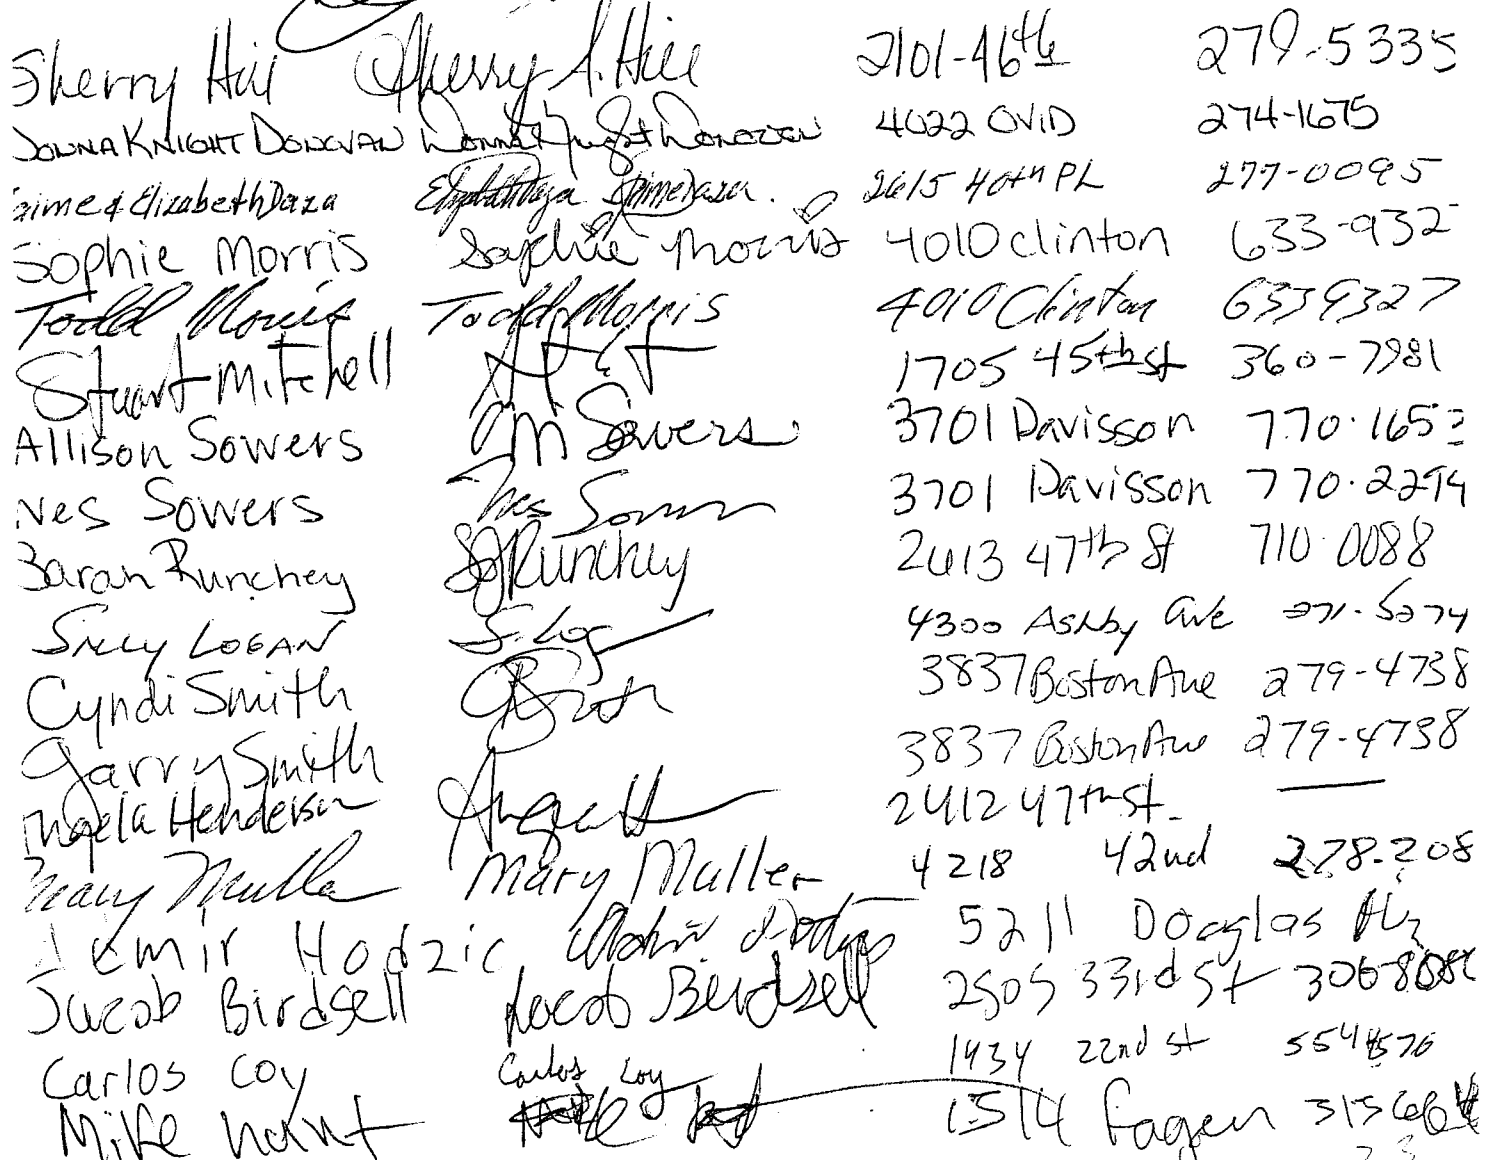 Sherry Hill Sherry S. Hill 2101-46th 279-5335
DONNA KNIGHT DONOVAN Donna Knight Donovan 4022 OVID 274-1675
aime & Elizabeth Daza Elizabeth Daza Jaime Daza. 2615 40th PL 277-0095
Sophie Morris Sophie Morris 4010 Clinton 633-932
Todd Morris Todd Morris 4010 Clinton 6339327
Stuart Mitchell 1705 45th St 360-7981
Allison Sowers Sowers 3701 Davisson 770.1653
Wes Sowers Wes Sowers 3701 Davisson 770.2294
Sarah Runchey Runchey 2613 47th St 710.0088
LOGAN S. Log 4300 Ashby Ave 271-5074
Cyndi Smith 3837 Boston Ave 279-4738
Garry Smith 3837 Boston Ave 279-4738
Angela Henderson 2412 47th St. —
Mary Muller Mary Muller 4218 42nd 278-208
emir Hodzic 5211 Douglas
Jacob Birdsell Jacob Birdsell 2505 33rd St
Carlos Coy Carlos Coy 1434 22nd st 554
Mike 1514 Fagen